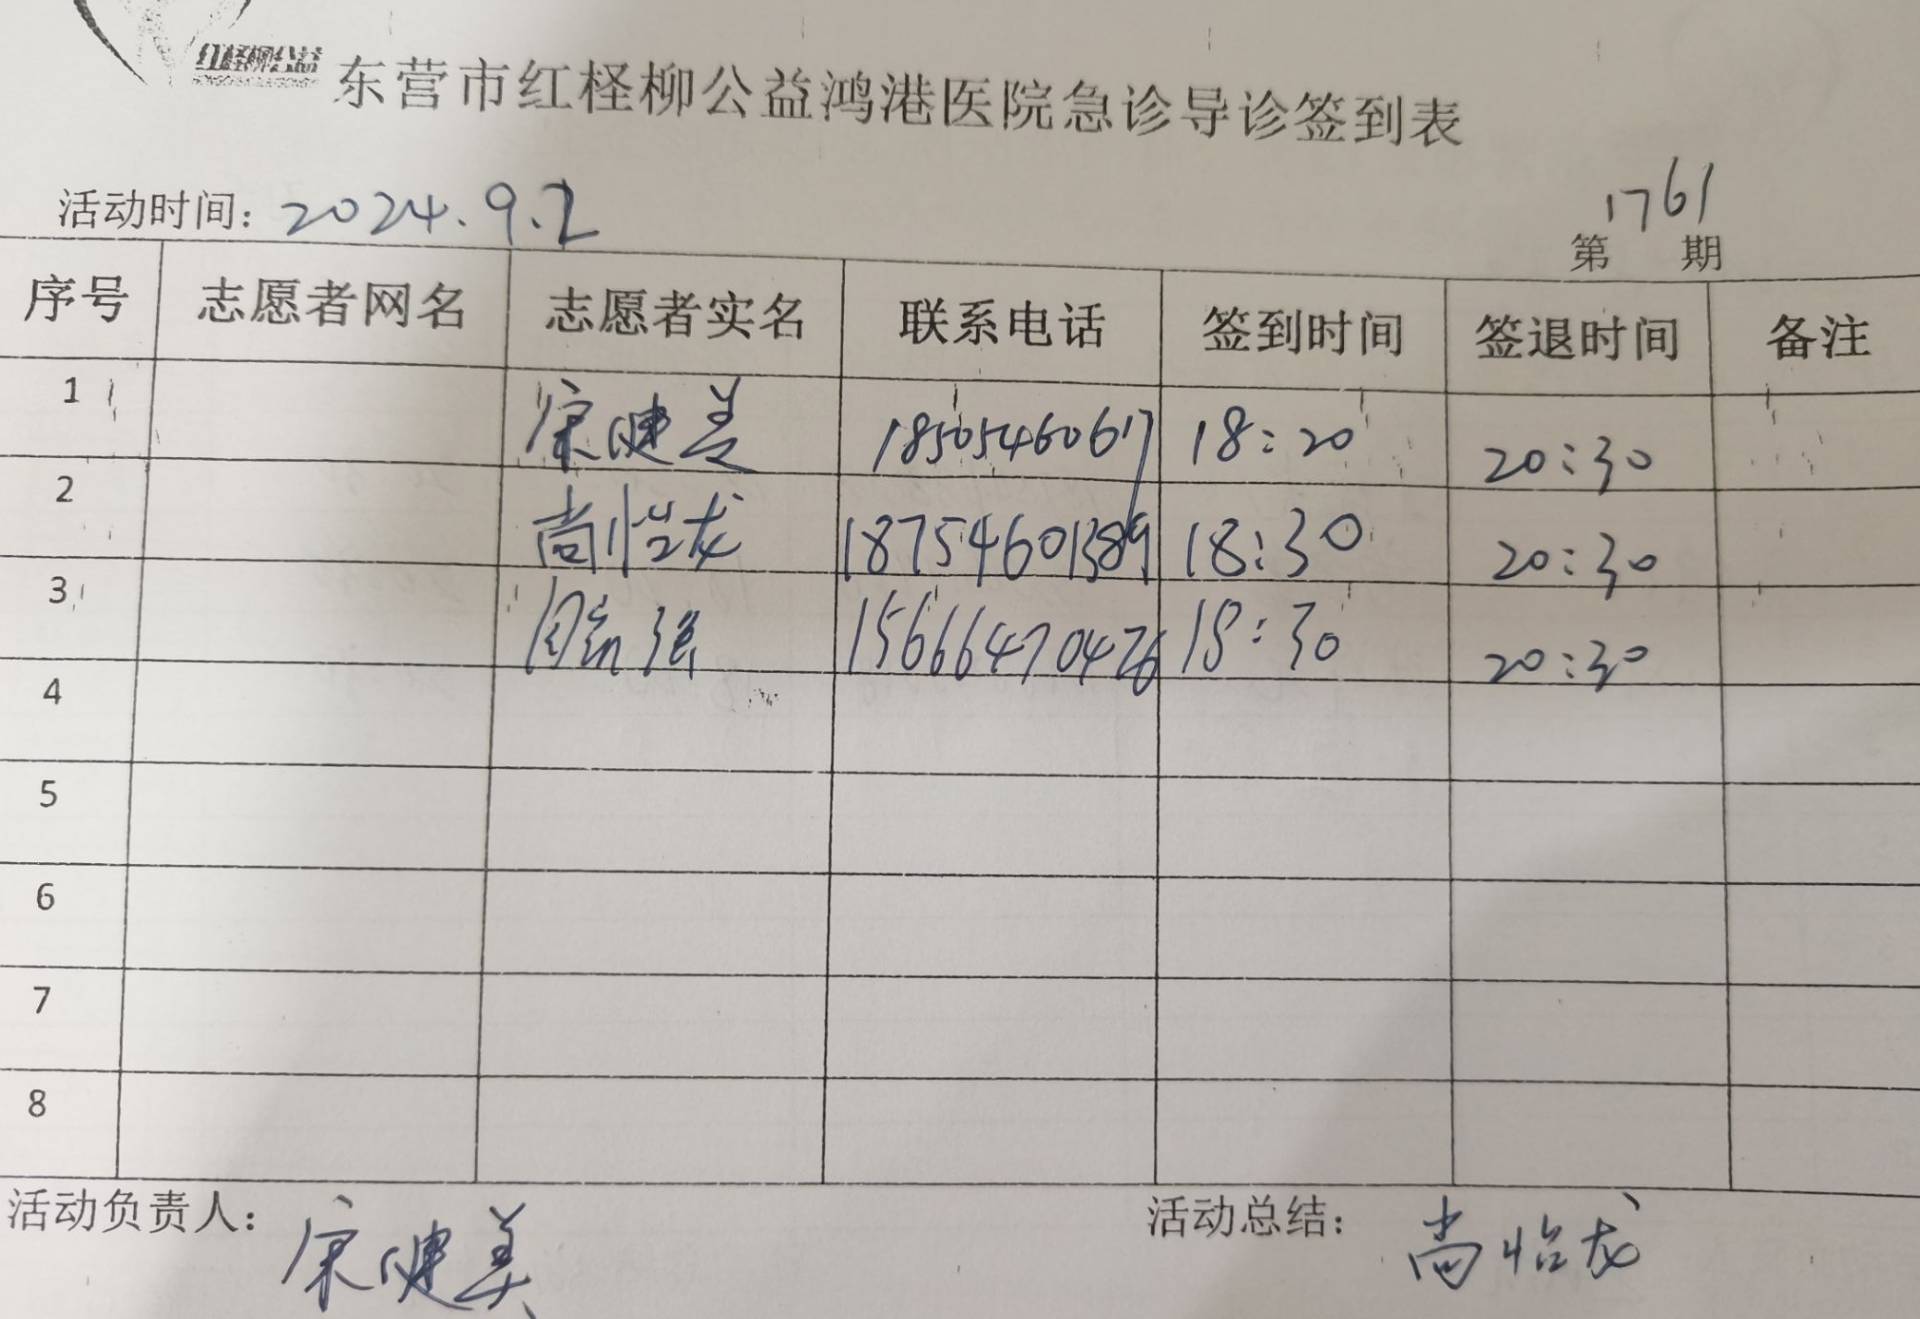 红柽柳公益
东营市红柽柳公益鸿港医院急诊导诊签到表
活动时间：2024.9.2
第1761期
序号 志愿者网名 志愿者实名 联系电话 签到时间 签退时间 备注
1 宋健美 18505460617 18:20 20:30
2 尚怡龙 18754601389 18:30 20:30
3 周 强 15666470426 18:30 20:30
4
5
6
7
8
活动负责人：宋健美
活动总结：尚怡龙